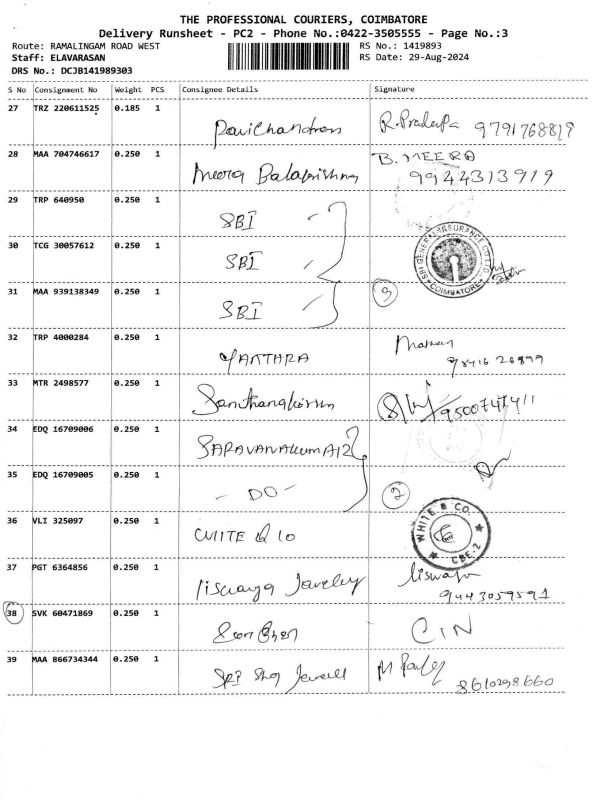 THE PROFESSIONAL COURIERS, COIMBATORE
Delivery Runsheet - PC2 - Phone No.:0422-3505555 - Page No.:3
Route: RAMALINGAM ROAD WEST RS No.: 1419893
Staff: ELAVARASAN RS Date: 29-Aug-2024
DRS No.: DCJB141989303
S No Consignment No Weight PCS Consignee Details Signature
27 TRZ 220611525 0.185 1 Ravichandran 9791768819
28 MAA 704746617 0.250 1 Meera Balakrishnan B. MEERA
9944313919
29 TRP 640950 0.250 1 SBI
30 TCG 30057612 0.250 1 SBI SBI GENERAL INSURANCE CO LTD COIMBATORE
31 MAA 939138349 0.250 1 SBI 3
32 TRP 4000284 0.250 1 YANTHRA 9841626899
33 MTR 2498577 0.250 1 9500747411
34 EDQ 16709006 0.250 1 SARAVANAKUMAR
35 EDQ 16709005 0.250 1 - DO - 2
36 VLI 325097 0.250 1 WHITE & CO. CBE-2
37 PGT 6364856 0.250 1
9443059591
38 SVK 60471869 0.250 1
39 MAA 866734344 0.250 1 8610298660